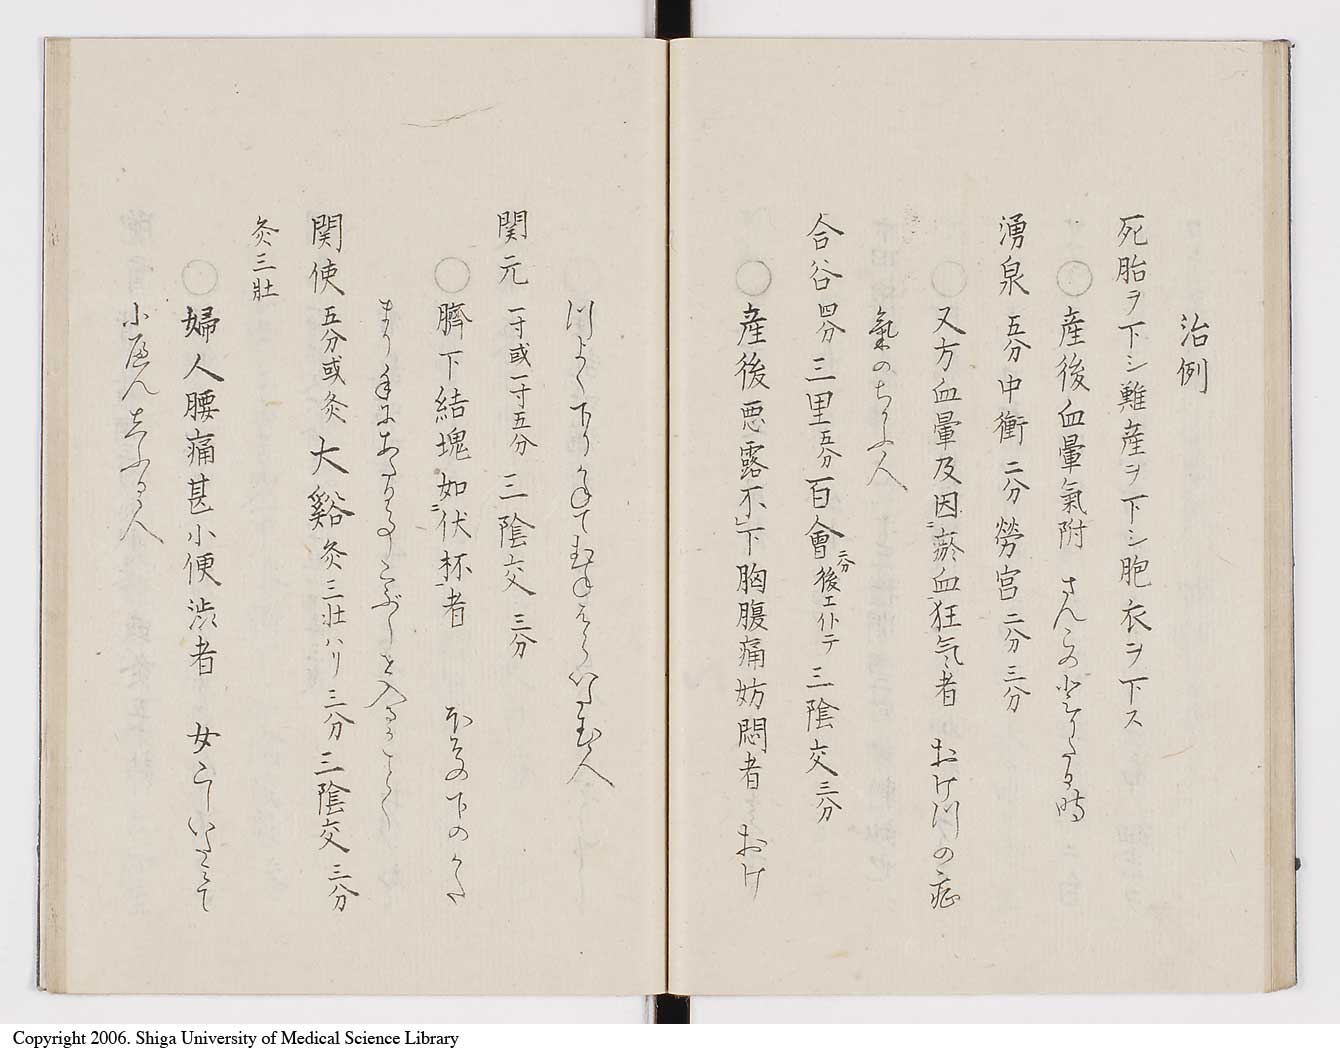 治例
死胎ヲ下シ難産ヲ下シ胞衣ヲ下ス
○産後血暈氣附 さん後のとりたる時
湧泉 五分 中衝 二分 勞宮 二分三分
○又方血暈及因ニ瘀血狂気者 おけ川の症
氣のちかふ人
合谷 四分 三里 五分 百會 三分 後エ仆テ 三陰交 三分
○産後悪露不レ下胸腹痛妨悶者 おけ
川よく下りかねてむねはらいたむ人
関元 一寸或一寸五分 三陰交 三分
○臍下結塊如ニ伏杯一者 ほその下のかた
まり手にあたる
関使 五分或灸 大谿 灸三壮ハリ三分 三陰交 三分
灸三壯
○婦人腰痛甚小便渋者 女こしいたみて
小べんしぶる人
Copyright 2006. Shiga University of Medical Science Library